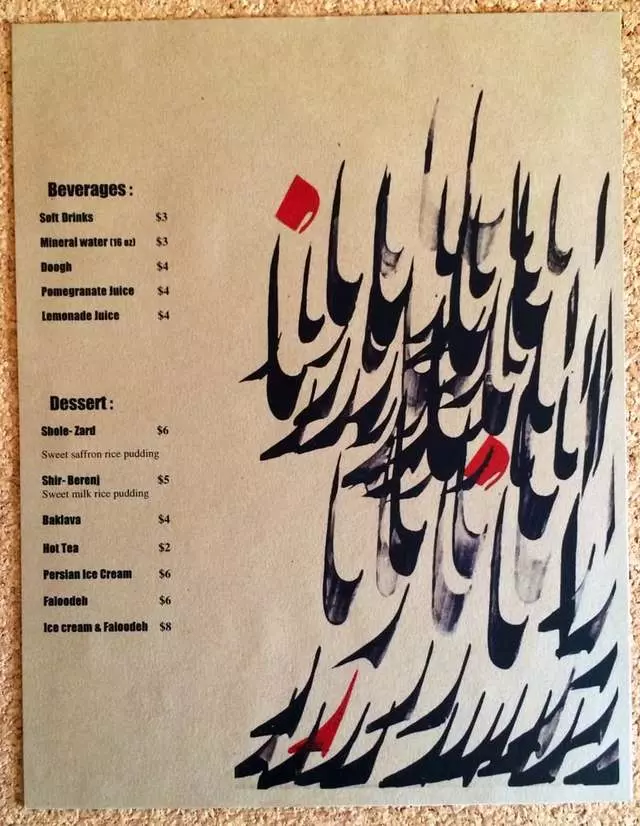 Beverages :
Soft Drinks $3
Mineral water (16 oz) $3
Doogh $4
Pomegranate Juice $4
Lemonade Juice $4
Dessert :
Shole- Zard $6
Sweet saffron rice pudding
Shir- Berenj $5
Sweet milk rice pudding
Baklava $4
Hot Tea $2
Persian Ice Cream $6
Faloodeh $6
Ice cream & Faloodeh $8